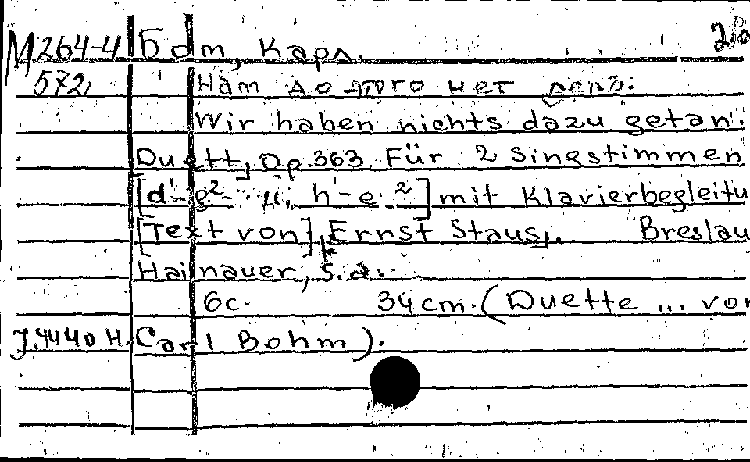 М264-4 Бом, Карл.
572, Нам до этого нет дела.
Wir haben nichts dazu getan.
Duett, Op.363. Für 2 Singstimmen
[d'-g² u. h-e²] mit Klavierbegleitu
[Text von] Ernst Staus. Breslau
Hainauer, s.a.
6c. 34cm. (Duette ... von
J.4440H. Carl Bohm).